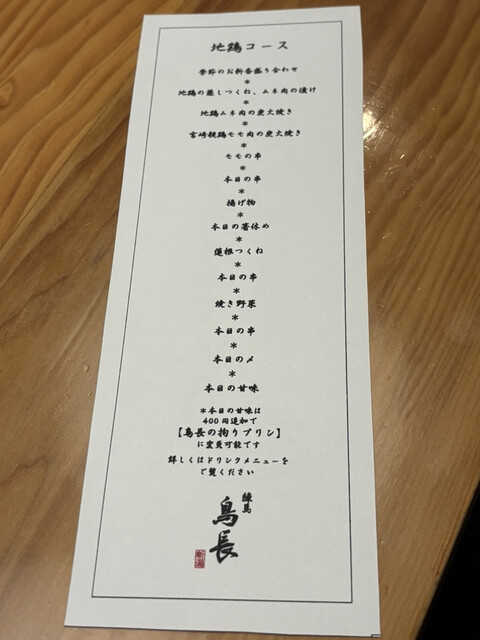 地鶏コース
季節のお新香盛り合わせ
*
地鶏の蒸しつくね、ムネ肉の漬け
*
地鶏ムネ肉の炭火焼き
*
宮崎親鶏モモ肉の炭火焼き
*
モモの串
*
本日の串
*
揚げ物
*
本日の箸休め
*
蓮根つくね
*
本日の串
*
焼き野菜
*
本日の串
*
本日の〆
*
本日の甘味
*本日の甘味は
400円追加で
【鳥長の拘りプリン】
に変更可能です
詳しくはドリンクメニューを
ご覧ください
練馬
鳥長